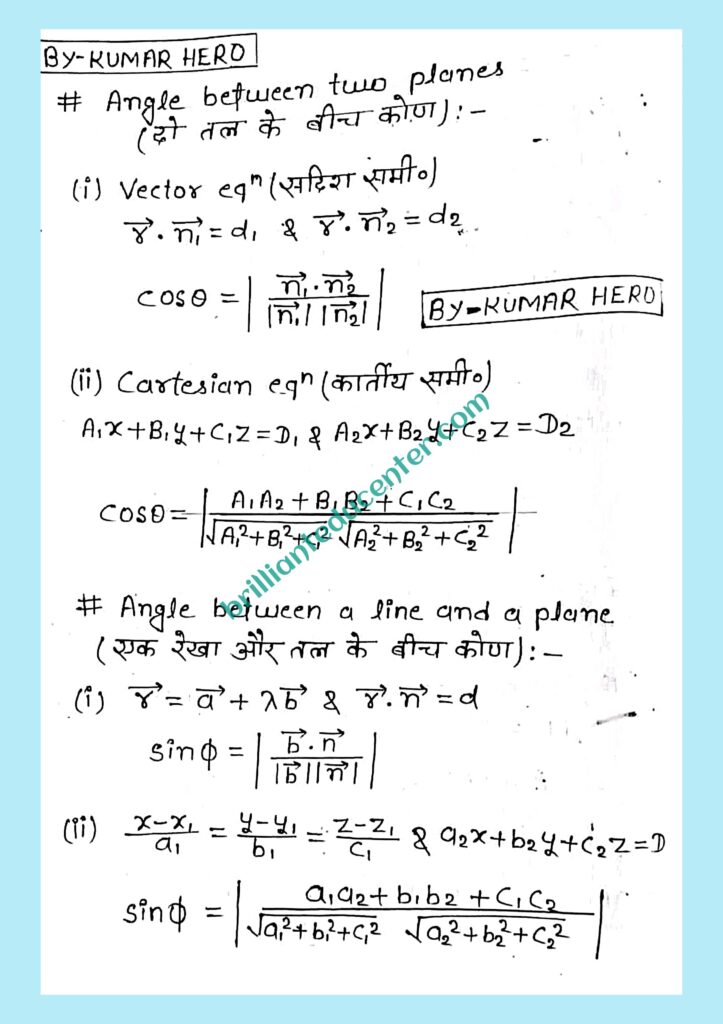 BY-KUMAR HERO
# Angle between two planes
(दो तल के बीच कोण):-
(i) Vector eqⁿ (सदिश समी०)
r⃗.n⃗₁ = d₁ & r⃗.n⃗₂ = d₂
cosθ = | n⃗₁.n⃗₂ / |n⃗₁| |n⃗₂| |
BY-KUMAR HERO
(ii) Cartesian eqⁿ (कार्तीय समी०)
A₁x+B₁y+C₁z=D₁ & A₂x+B₂y+C₂z=D₂
cosθ = | A₁A₂+B₁B₂+C₁C₂ / √A₁²+B₁²+C₁² √A₂²+B₂²+C₂² |
brillianteducenter.com
# Angle between a line and a plane
(एक रेखा और तल के बीच कोण):-
(i) r⃗ = a⃗ + λb⃗ & r⃗.n⃗ = d
sinϕ = | b⃗.n⃗ / |b⃗||n⃗| |
(ii) x-x₁/a₁ = y-y₁/b₁ = z-z₁/c₁ & a₂x+b₂y+c₂z=D
sinϕ = | a₁a₂+b₁b₂+c₁c₂ / √a₁²+b₁²+c₁² √a₂²+b₂²+c₂² |